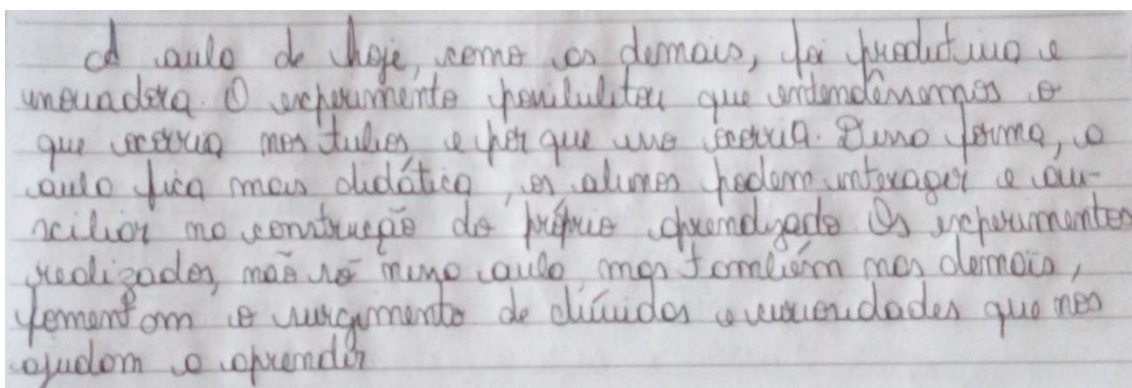 A aula de hoje, como as demais, foi produtiva e
inovadora. O experimento possibilitou que entendêssemos o
que ocorria nos tubos e por que isso ocorria. Dessa forma, a
aula fica mais didática, os alunos podem interager e au-
xiliar na construção do próprio aprendizado. Os experimentos
realizados, não só nessa aula mas também nas demais,
fomentam o surgimento de dúvidas e curiosidades que nos
ajudam a aprender